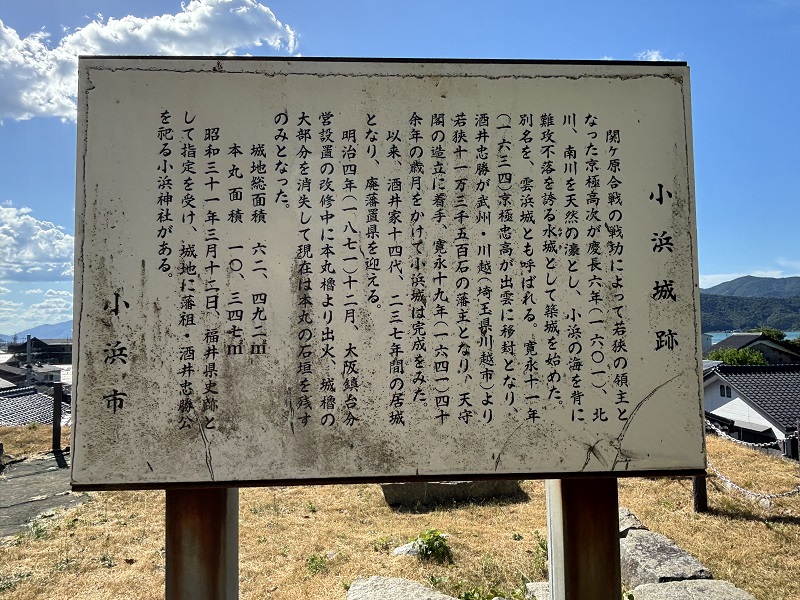 小浜城跡
関ケ原合戦の戦功によって若狭の領主と
なった京極高次が慶長六年(一六〇一)、北
川、南川を天然の濠とし、小浜の海を背に
難攻不落を誇る水城として築城を始めた。
別名を、雲浜城とも呼ばれる。寛永十一年
(一六三四)京極忠高が出雲に移封となり、
酒井忠勝が武州・川越(埼玉県川越市)より
若狭十一万三千五百石の藩主となり、天守
閣の造立に着手、寛永十九年(一六四一)四十
余年の歳月をかけて小浜城は完成をみた。
以来、酒井家十四代、二三七年間の居城
となり、廃藩置県を迎える。
明治四年(一八七一)十二月、大阪鎮台分
営設置の改修中に本丸櫓より出火、城櫓の
大部分を消失して現在は本丸の石垣を残す
のみとなった。
城地総面積 六二、四九二㎡
本丸面積 一〇、三四七㎡
昭和三十一年三月十二日、福井県史跡と
して指定を受け、城地に藩祖・酒井忠勝公
を祀る小浜神社がある。
小浜市